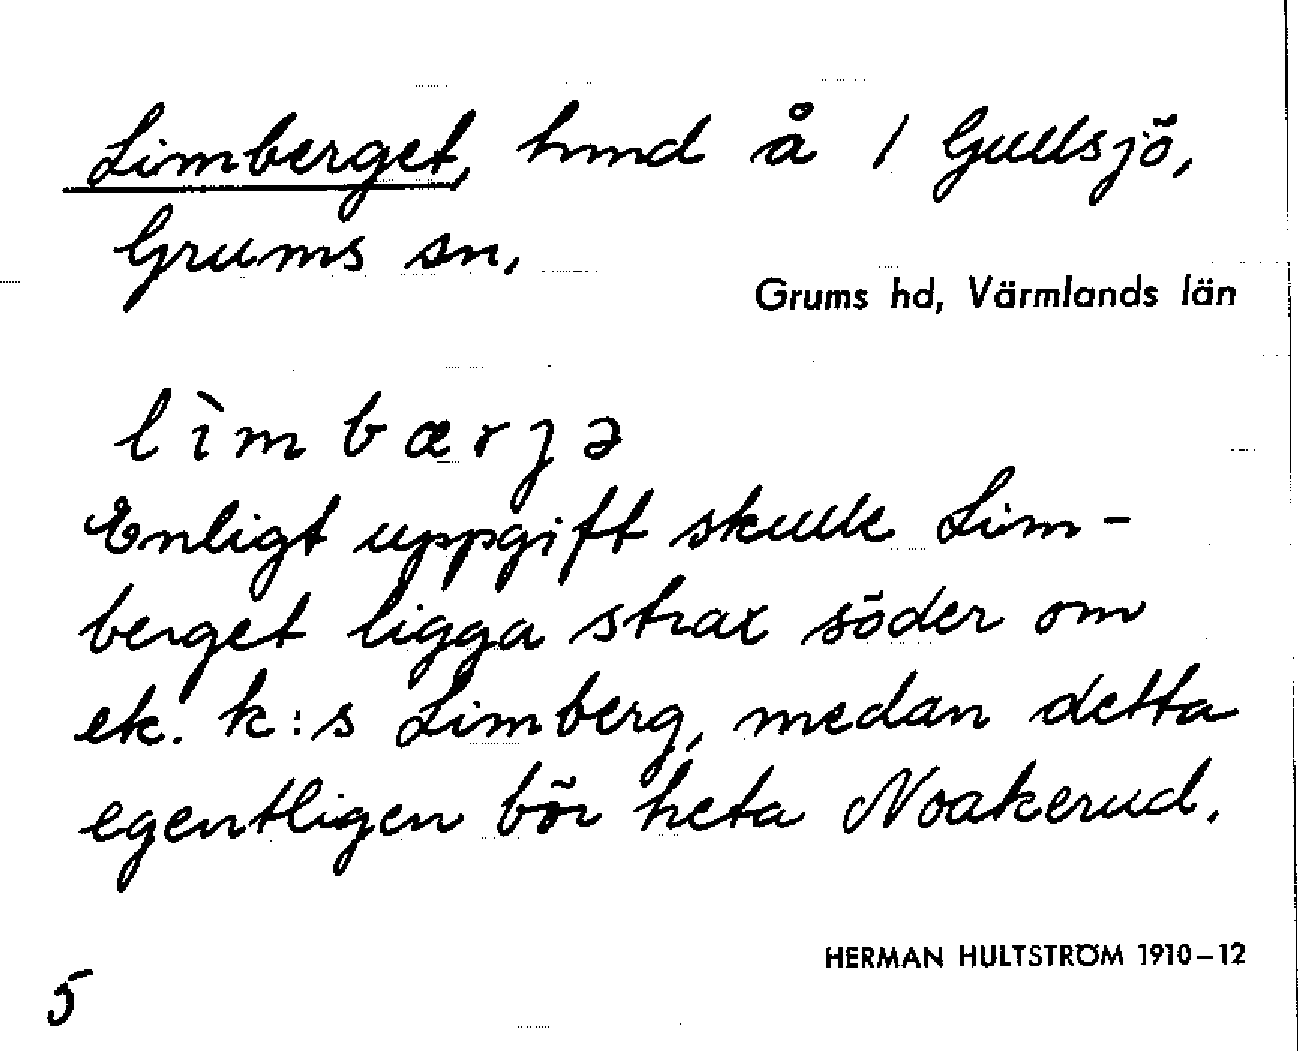 Limberget, hmd å 1 Gullsjö,
Grums sn,
Grums hd, Värmlands län
lìmbærjə
Enligt uppgift skulle Lim-
berget ligga strax söder om
ek. k:s Limberg, medan detta
egentligen bör heta Noakerud.
HERMAN HULTSTRÖM 1910–12
5